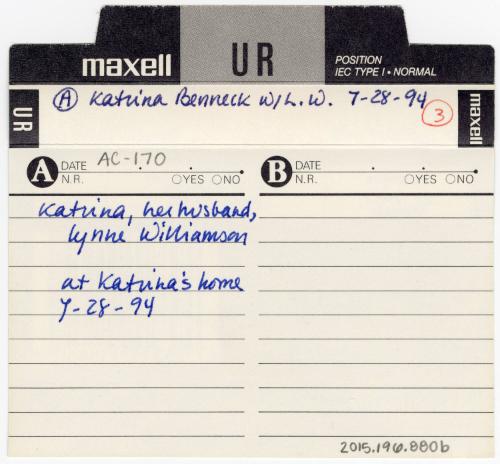 maxell UR POSITION
IEC TYPE I • NORMAL
UR Ⓐ Katrina Benneck w/L.W. 7-28-94 3 maxell
A DATE AC-170
N.R. ○YES ○NO
B DATE
N.R. ○YES ○NO
Katrina, her husband,
Lynne Williamson
at Katrina's home
7-28-94
2015.196.880b